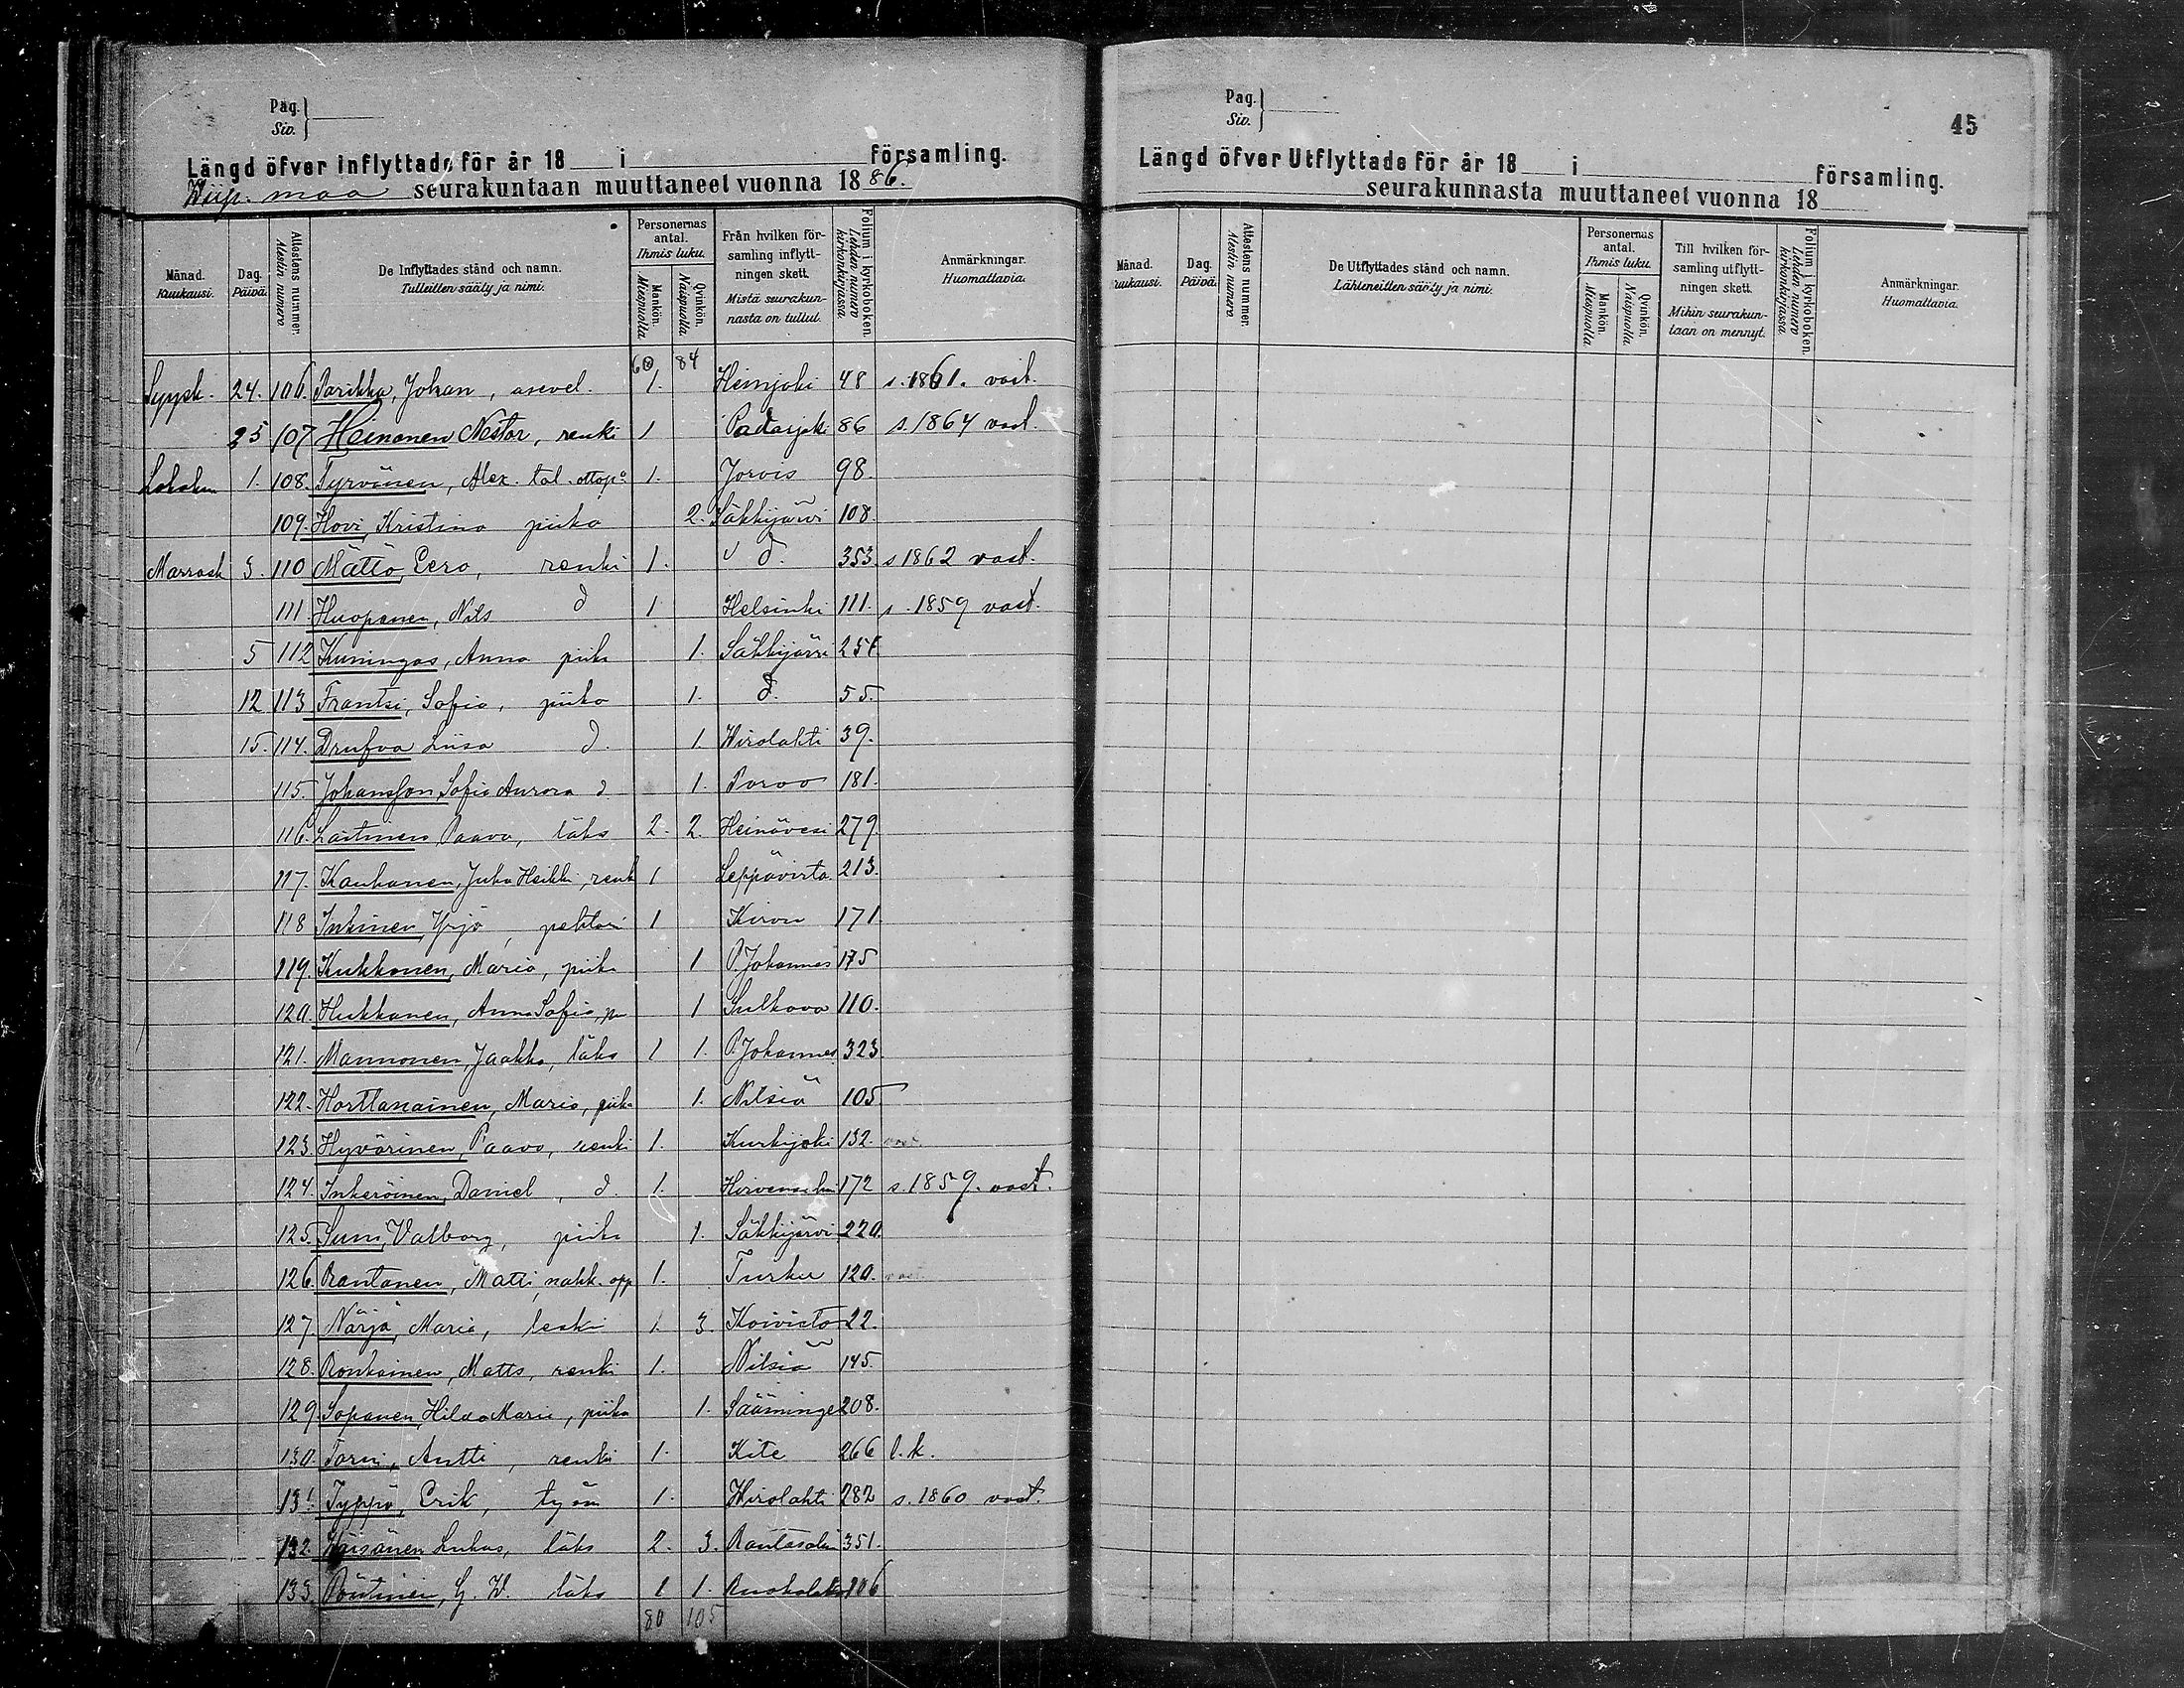 Pag.
Siv.
Längd öfver Inflyttade för år 18 i församling.
Wiip. maa seurakuntaan muuttaneet vuonna 1886.
Månad. Kuukausi. Dag. Päivä. Attestens nummer. Alestin numero De Inflyttades stånd och namn. Tulleitten sääty ja nimi. Personernas antal. Ihmis luku. Mankön. Miespuolia Qvinkön. Naispuolia Från hvilken församling inflyttningen skett. Mistä seurakunnasta on tullut. Folium i kyrkoboken. Lehden numero kirkonkirjassa Anmärkningar. Huomattavia.
60 84
Syysk. 24. 106. Parikka, Johan, asevel. 1. Heinjoki 48 s. 1861. vast.
25 107 Heinonen Nestor, renki 1 Padasjoki 86 s. 1864 vast.
Lokakuu 1. 108. Tyrväinen, Alex. tal. ottop. 1. Jorvis 98.
109. Hovi, Kristina piika 2. Säkkijärvi 108.
Marrask 3. 110 Mättö, Eero, renki 1. d. 353 s 1862 vast.
111. Huopanen, Nils d 1 Helsinki 111. s. 1859 vast.
5 112 Kuningas, Anna piika 1. Säkkijärvi
12 113 Frantsi, Sofia, piika 1. d. 55.
15. 114. Drufva Liisa d. 1. Wirolahti 39.
115. Johansson, Sofia Aurora d 1. Porvoo 181.
116. Laitinen, Paavo, läks 2. 2. Heinävesi 279
117. Kauhanen, Juho Heikki, renk 1 Leppävirta 213.
118 Inkinen, Yrjö, pehtori 1 Kirvu 171.
119. Kukkonen, Maria, piika 1 P. Johannes 175
120. Hukkanen, Anna Sofia, p 1 Sulkava 110.
121. Mannonen, Jaakko, läks 1 1. P. Johannes 323.
122. Horttanainen, Maria, piika 1. Nilsiä 105
123. Hyvärinen, Paavo, renki 1. Kurkijoki 132. vast.
124. Inkeröinen, Daniel, d. 1. Hirvensalmi 172 s. 1859. vast.
125. Suni, Valborg, piika 1. Säkkijärvi 220.
126. Rantanen, Matti, nahk. opp 1. Turku 120.
127. Närjä, Maria, leski 1. 3. Koivisto 22.
128. Ronkainen, Matts, renki 1. Nilsiä 145.
129 Sopanen, Hilda Maria, piika 1. Sääminge 208.
130. Torni, Antti, renki 1. Kite 266 l. k.
131. Typpö, Erik, työm 1. Wirolahti 282 s. 1860 vast.
132. Väisänen Lukas, läks 2. 3. Rantasalmi 351.
133. Pöntinen, G. W. läks 1 1. Ruskolahti 106
80 105
Pag.
Siv.
45
Längd öfver Utflyttade för år 18 i församling.
seurakunnasta muuttaneet vuonna 18
Månad. Kuukausi. Dag. Päivä. Attestens nummer. Alestin numero De Utflyttades stånd och namn. Lähteneitten sääty ja nimi. Personernas antal. Ihmis luku. Mankön. Miespuolia Qvinkön. Naispuolia Till hvilken församling utflyttningen skett. Mihin seurakuntaan on mennyt. Folium i kyrkoboken. Lehden numero kirkonkirjassa Anmärkningar. Huomattavia.